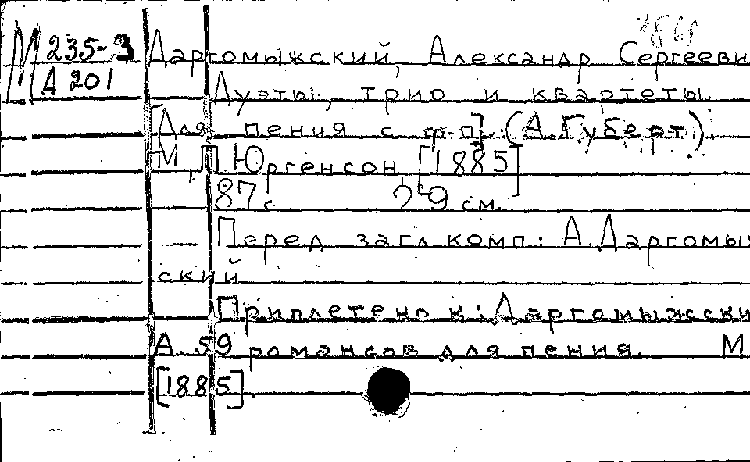 М 235-3 Даргомыжский, Александр Сергееви
А 201 Дуэты, трио и квартеты.
[Для пения с ф-п] (А. Губерт).
М., П. Юргенсон [1885]
87 с. 29 см.
Перед загл. комп.: А. Даргомы
ский
Приплетено к: Даргомыжски
А. 59 романсов для пения. М
[1885].